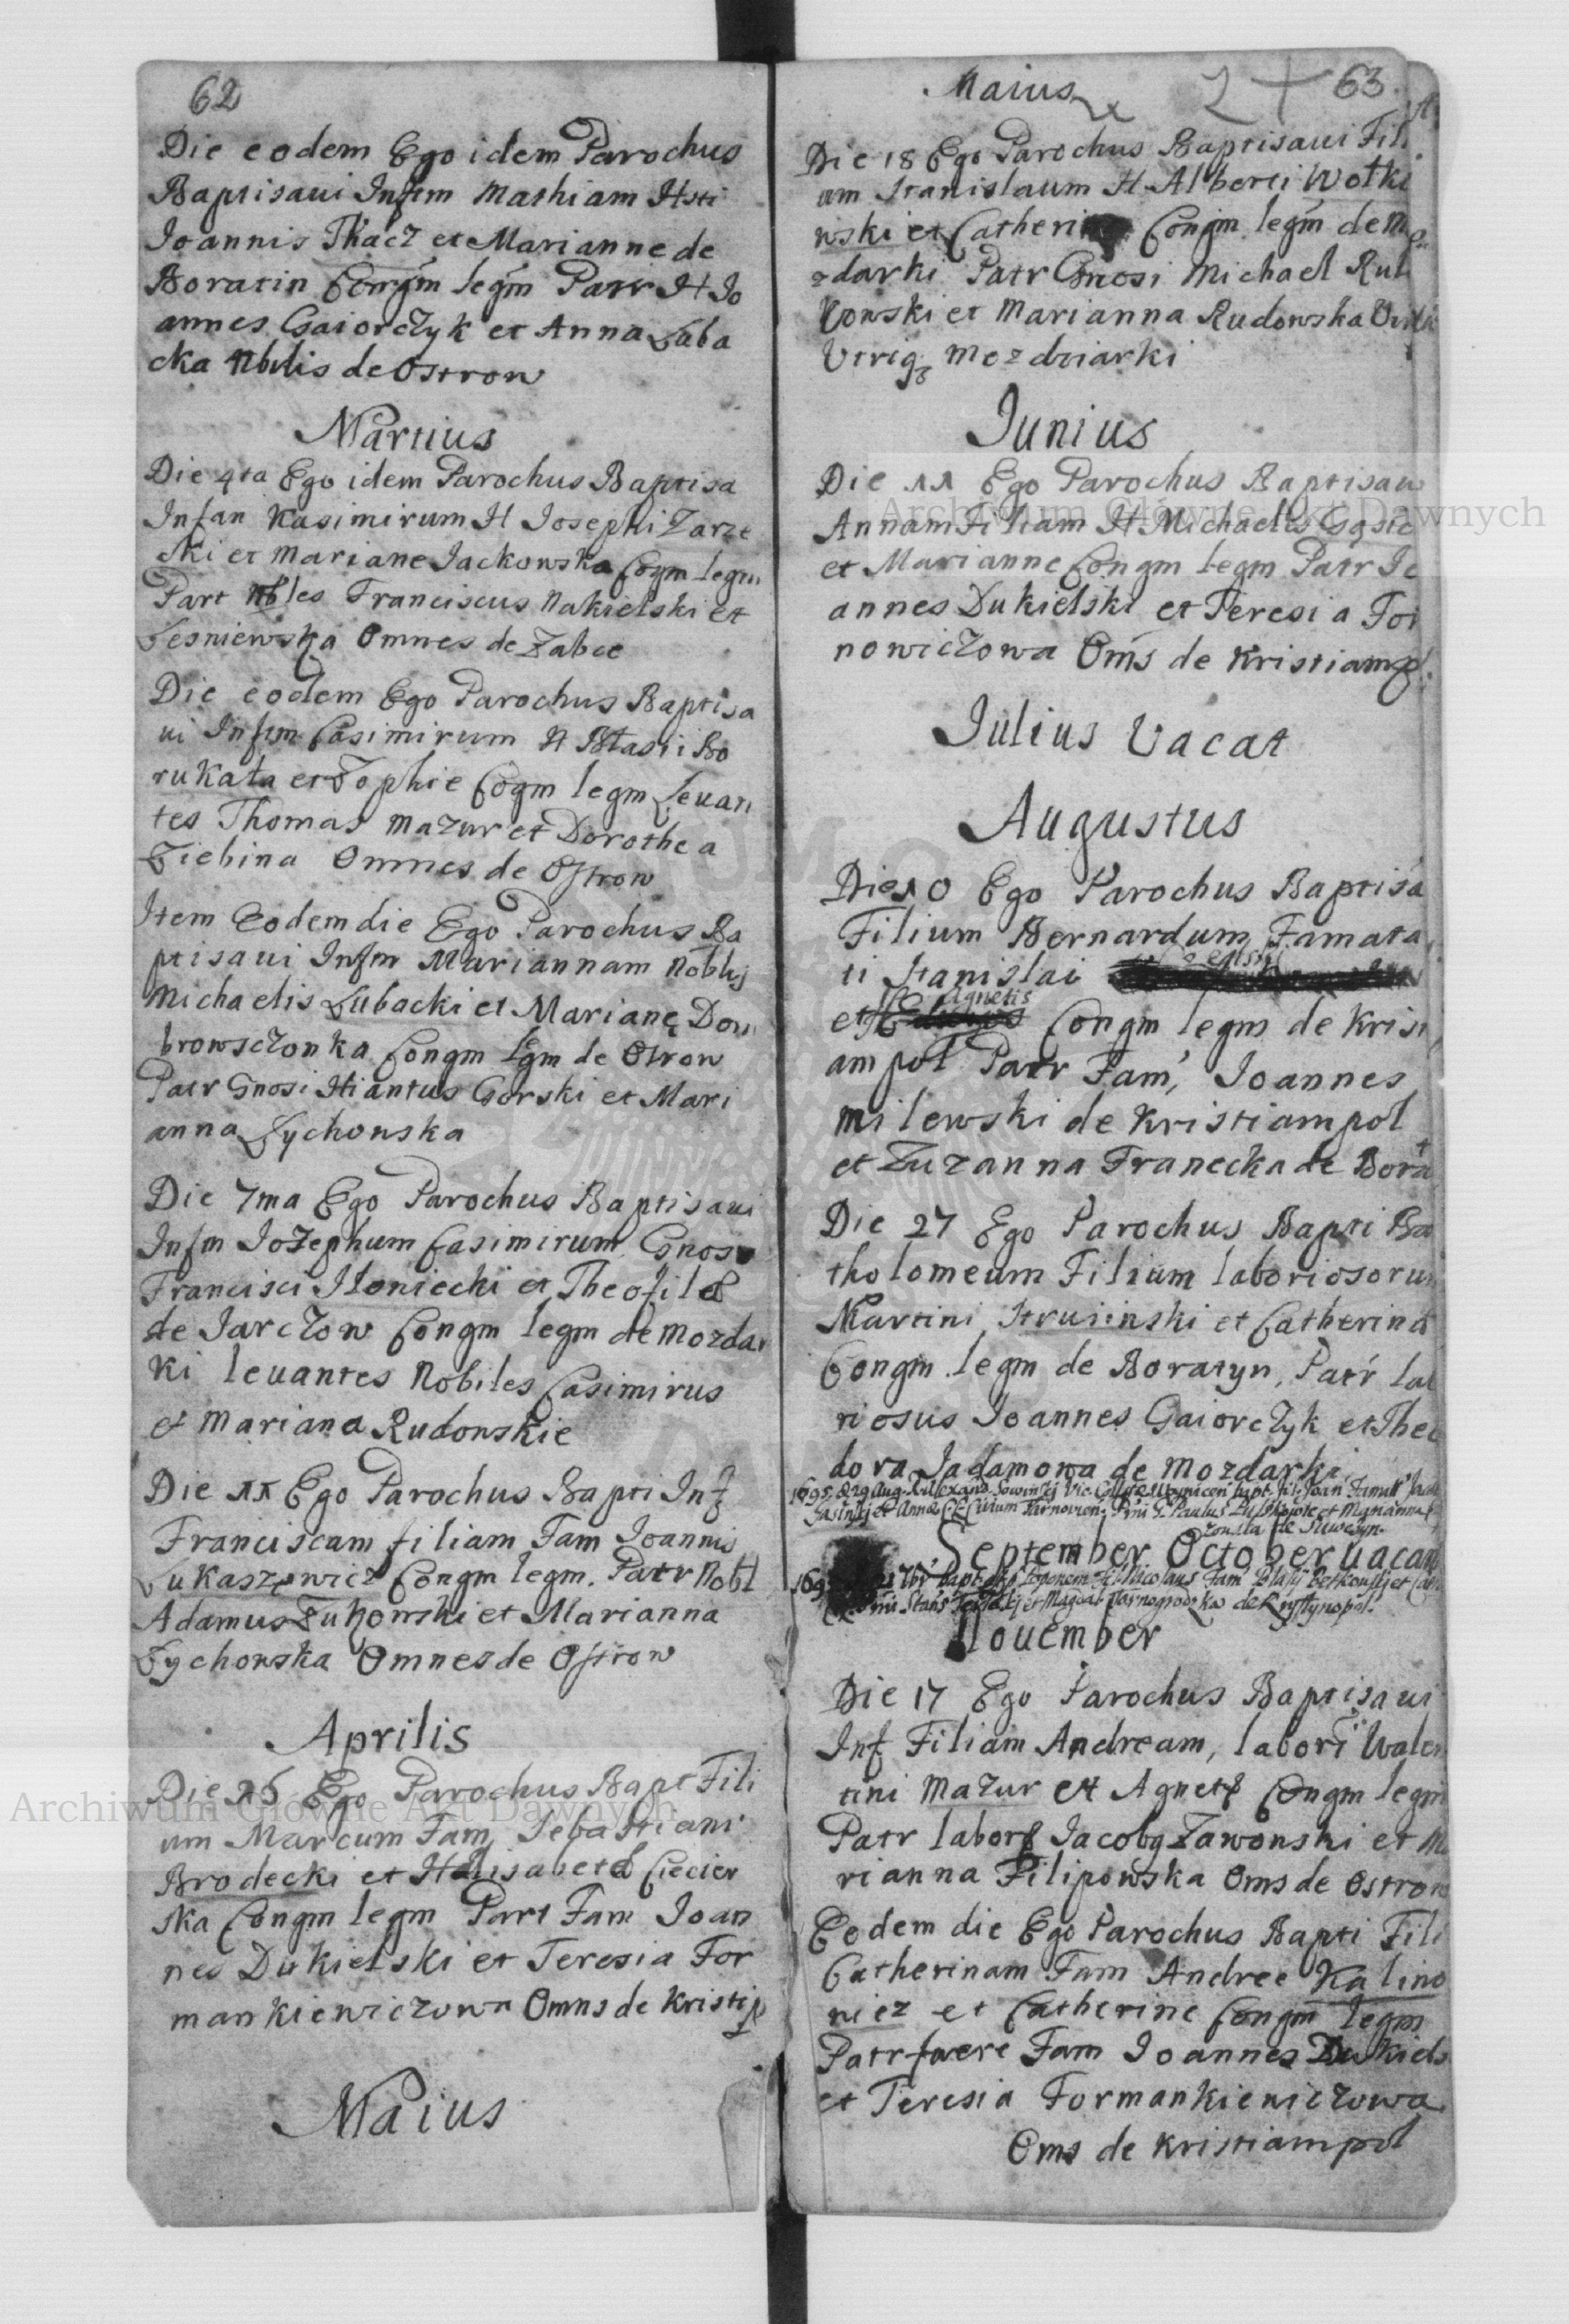 62
Die eodem Ego idem Parochus
Baptisaui Infm Mathiam Hsti
Joannis Tkacz et Marianne de
Boratin Congm legm Patr H Jo
annes Gaiorczyk et Anna Łaba
cka Nbilis de Ostrow
Martius
Die 4ta Ego idem Parochus Baptisa
Infan Kasimirum H Josephi Zarze
cki et Mariane Jackowska Cogm legm
Part Nbles Franciscus Nakielski et
Lesniewska Omnes de Zabce
Die eodem Ego Parochus Baptisa
ui Infm Casimirum H Błasii Bo
rukała et Zophie Cogm legm Leuan
tes Thomas Mazur et Dorothea
Ziehina Omnes de Ostrow
Item Eodem die Ego Parochus Ba
ptisaui Infm Mariannam Noblij
Michaelis Łubacki et Mariane Dom
browsczonka Congm Lgm de Ostrow
Patr Gnosi Hiantus Gorski et Mari
anna Łychowska
Die 7ma Ego Parochus Baptisaui
Infm Jozephum Casimirum Gnos
Francisci Słoniecki et Theofile
de Jarczow Congm legm de Mozdar
ki leuantes Nobiles Casimirus
et Mariana Rudonskie
Die 11 Ego Parochus Bapti Inf
Franciscam filiam Fam Joannis
Łukaszewicz Congm legm. Patr Nobl
Adamus Zuhowski et Marianna
Łychowska Omnes de Ostrow
Aprilis
Die 16 Ego Parochus Bapt Fili
um Marcum Fam Sebastiani
Brodecki et Helisabete Ciecier
ska Congm legm Part Fam Joan
nes Dukielski et Teresia For
mankiewiczowa Omns de Kristip
Maius
Maius 2 + 63
Die 18 Ego Parochus Baptisaui Fili
um Stanislaum H Alberti Wołko
wski et Catherin Congm legm de Mo
zdarki Patr Gnosi Michael Rut
kowski et Marianna Rudowska
Utrigz Mozdziarki
Junius
Die 11 Ego Parochus Baptisau
Annam Filiam H Michaelis Gąsie
et Marianne Congm legm Patr Jo
annes Dukielski et Teresia For
nowiczowa Oms de Kristiampol
Julius Vacat
Augustus
Die 10 Ego Parochus Baptisa
Filium Bernardum Famata
ti Stanislai
et Agnetis Congm legm de Krist
ampol Patr Fam, Joannes
Milewski de Kristiampol
et Zuzanna Franecka de Bora
Die 27 Ego Parochus Bapti Ba
tholomeum Filium laboriosorum
Martini Strusinski et Catherina
Congm legm de Boratyn, Patr lab
riosus Joannes Gaiorczyk et Theo
dora Jadamowa de Mozdarki
1695 D 29 Aug. R. Alexand. Vic. bapt. fil. Joan Famat
et Anna Civium Tarnovien. Pni G. Paulus et Marianna
September October uacan
169 7br bapt. Nicolaus Fam Blasij et
Pni Stan et Magdal Tarnogrodzka de Krystynopol.
Nouember
Die 17 Ego Parochus Baptisaui
Inf Filiam Andream, labori Walen
tini Mazur et Agnete Congm legm
Patr labore Jacobg Zawonski et Ma
rianna Filipowska Oms de Ostrow
Eodem die Ego Parochus Bapti Fili
Catherinam Fam Andree Kalino
wicz et Catherine Congm legm
Patr fuere Fam Joannes Dukiels
et Teresia Formankiewiczowa
Oms de Kristiampol
Archiwum Główne Akt Dawnych
Archiwum Główne Akt Dawnych